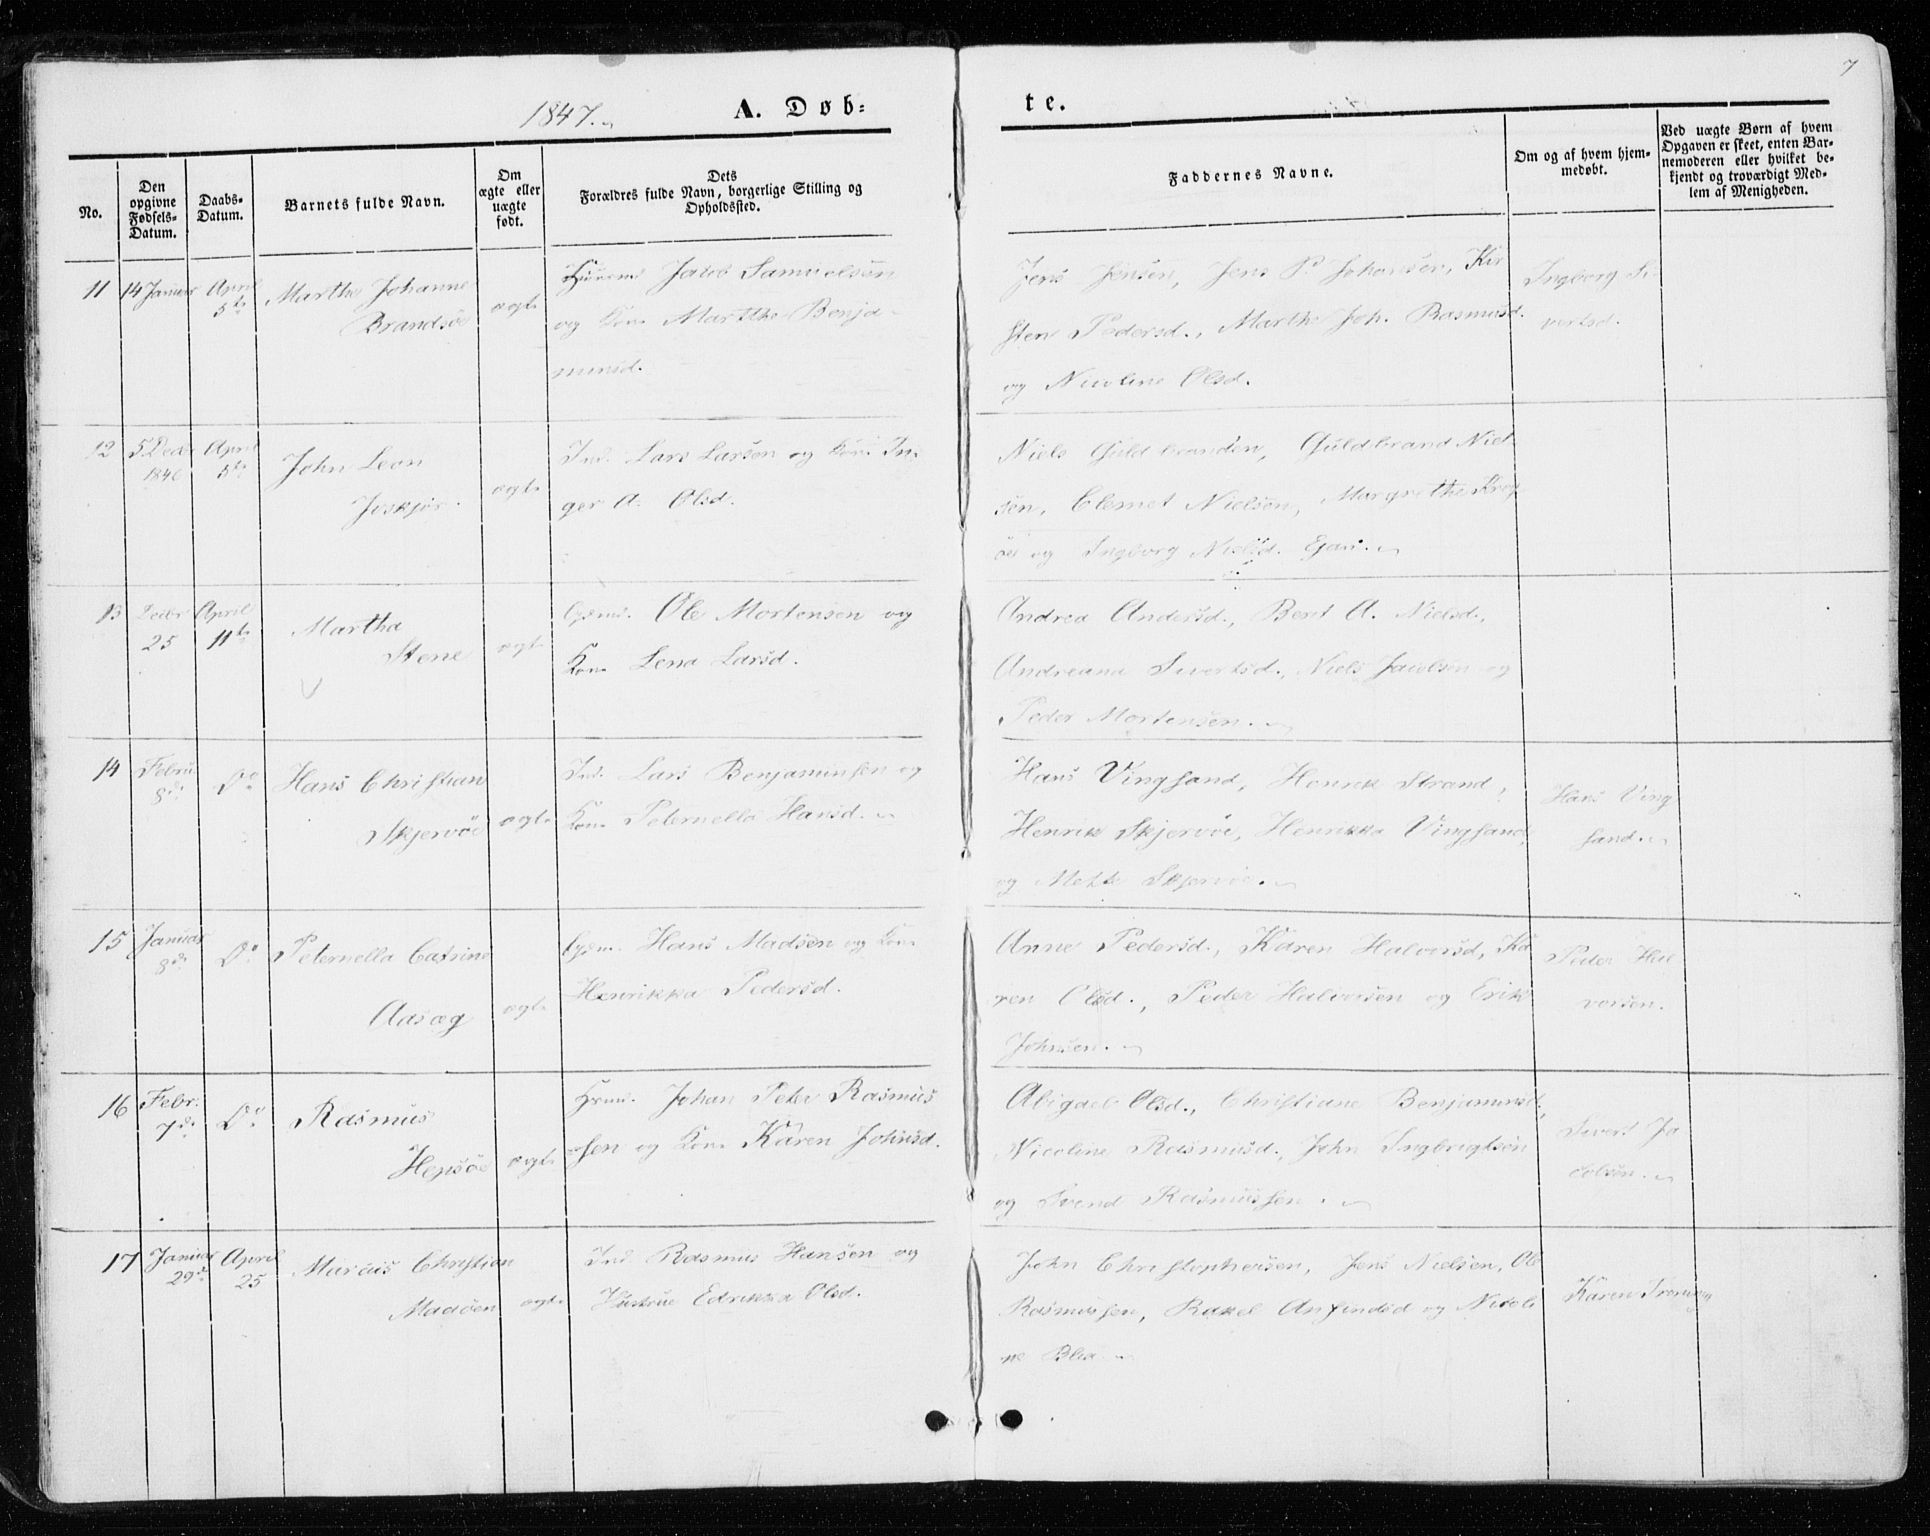 7
1847.
A. Døb-
te.
No.
Den opgivne Fødsels-Datum.
Daabs-Datum.
Barnets fulde Navn.
Om ægte eller uægte født.
Dets Forældres fulde Navn, borgerlige Stilling og Opholdssted.
Faddernes Navne.
Om og af hvem hjem-medøbt.
Ved uægte Børn af hvem Opgaven er skeet, enten Bar-nemoderen eller hvilket be-kjendt og troværdigt Med-lem af Menigheden.
11
14 Januar
April 5te
Marthe Johanne
Brandsøe
ægte
Jacob Samuelsen
og Kone Marthe Benja-
minsd.
Jens Jensen, Jens P. Johansen, Kir
sten Pedersd., Marthe Joh. Rasmusd.
og Nicoline Olsd.
Ingborg Si
vertsd.
12
5 Decbr 1846
April 5te
John Leon
ægte
Ind. Lars Larsen og Kone In-
ger A. Olsd.
Niels Guldbrandsen, Guldbrand Niel
sen, Clemet Nielsen, Margrethe
og Ingborg Nielsd.
13
Decbr 25
April 11te
Martha
Stene
ægte
Ole Mortensen og
Kone Lena Larsd.
Andrea Andersd., Berit A. Nielsd.,
Andreana Sivertsd., Niels Jacobsen og
Peder Mortensen.
14
Febru. 8de
Do
Hans Christian
Skjervøe
ægte
Ind. Lars Benjaminsen og
Kone Peternella Hansd.
Hans Vingsand, Henrik Strand,
Henrik Skjervøe, Henrikka Vingsand,
og Mette Skjervøe.
Hans Ving
sand.
15
Januar 8de
Do
Peternella Catrine
Aasæg
ægte
Hans Madsen og Kone
Henrikka Pedersd.
Anne Pedersd., Karen Halvorsd., Ka
ren Olsd., Peder Halvorsen og Erik
Johnsen.
Peder Hal
vorsen.
16
Febr: 7de
Do
Rasmus
Hepsøe
ægte
Johan Peter Rasmus
sen og Kone Karen Johnsd.
Abigael Olsd., Christiane Benjaminsd.,
Nicoline Rasmusd., John Ingbrigtsen
og Svend Rasmussen.
Sivert Ja
cobsen.
17
Januar 29de
April 25
Marcus Christian
Madsøen
ægte
Ind. Rasmus Hansen og
Hustrue Edrikka Olsd.
John Christophersen, Jens Nielsen, Ole
Rasmussen, Rakel Anfindsd og Nicoli
ne
Karen